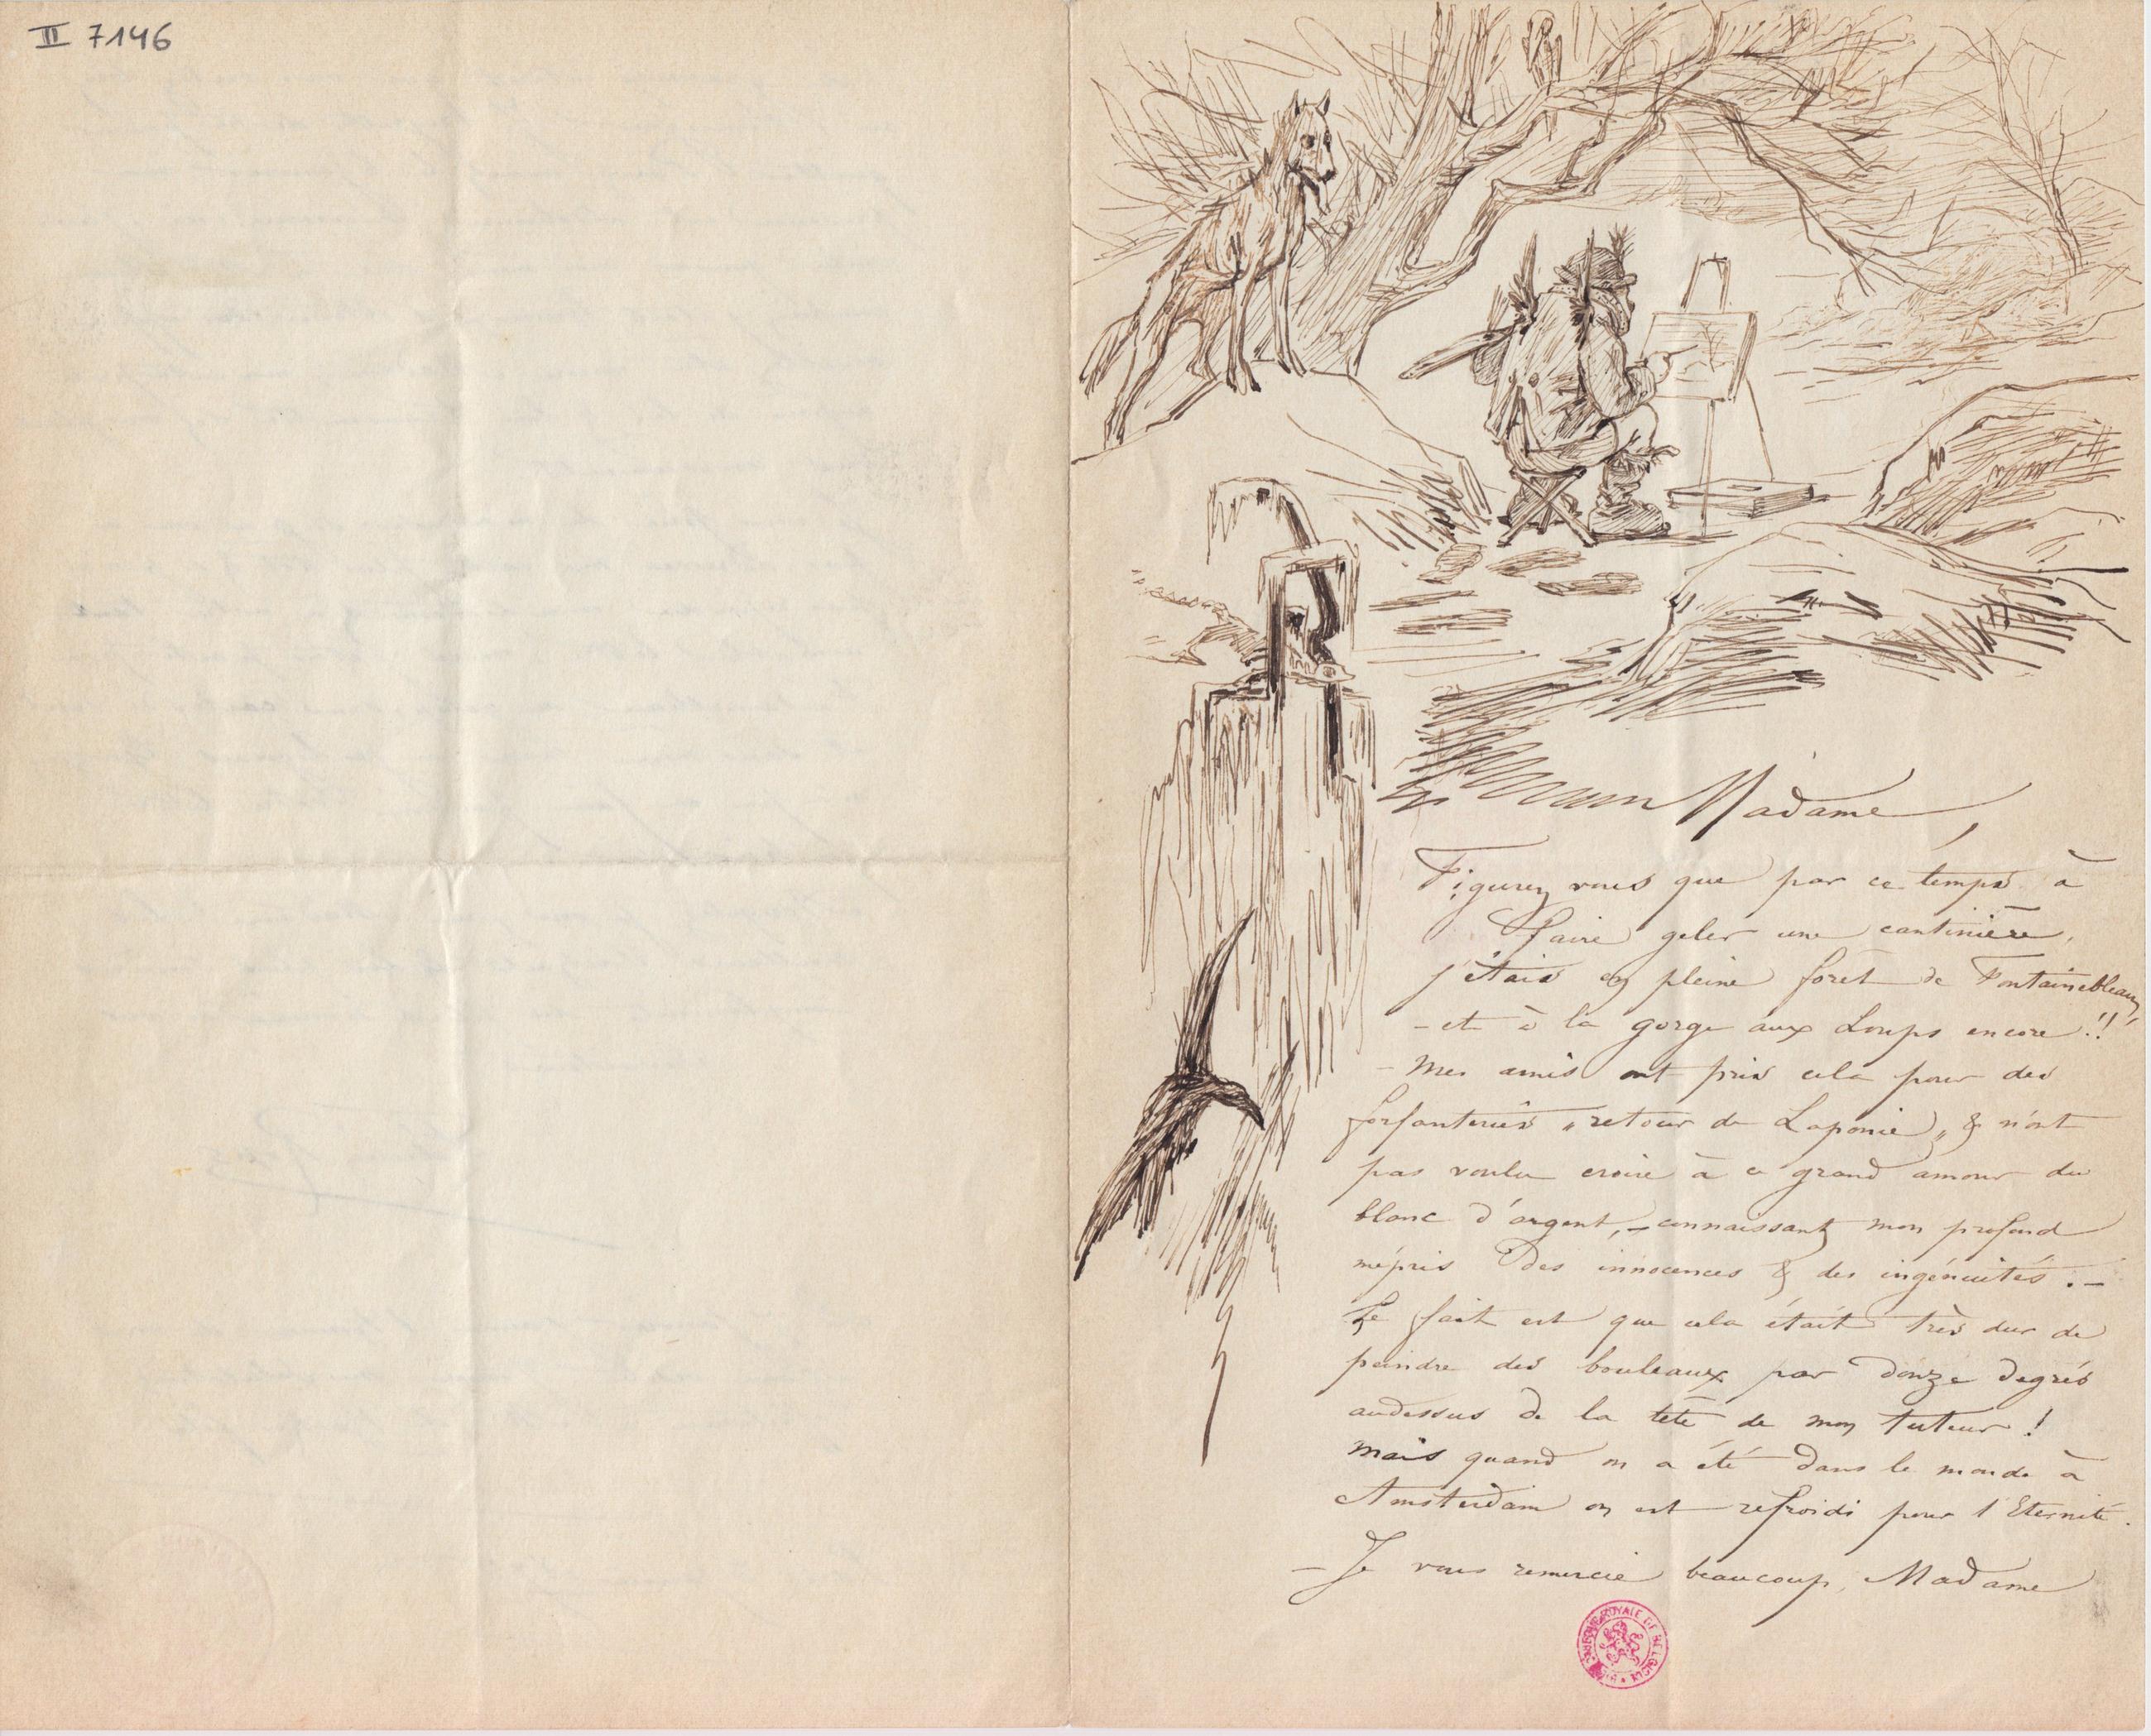 II 7146
Madame,
Figurez vous que par ce temps à
faire geler une cantinière,
j'étais en pleine foret de Fontainebleau,
- et à la gorge aux Loups encore!!
- Mes amis ont pris cela pour des
forfanteries „retour de Laponie„ & n'ont
pas voulu croire à ce grand amour du
blanc d'argent, - connaissant mon profond
mépris des innocences & des ingénuités. -
Le fait est que cela était très dur de
peindre des bouleaux par douze degrés
audessus de la tête de mon tuteur!
Mais quand on a été dans le monde à
Amsterdam on est refroidi pour l'Eternité.
- Je vous remercie beaucoup, Madame
BIBLIOTHEQUE ROYALE DE BELGIQUE